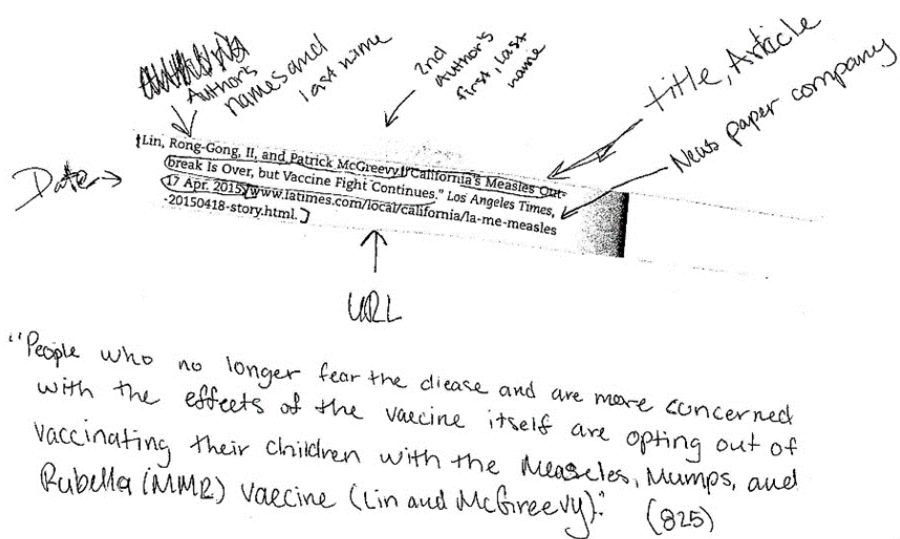 Author's
names and
last name
2nd
author's
first, last
name
title, Article
News paper company
Date
[Lin, Rong-Gong, II, and Patrick McGreevy. "California's Measles Out-
break Is Over, but Vaccine Fight Continues." Los Angeles Times,
17 Apr. 2015, www.latimes.com/local/california/la-me-measles
-20150418-story.html.]
URL
"People who no longer fear the diease and are more concerned
with the effects of the vaccine itself are opting out of
vaccinating their children with the Measeles, Mumps, and
Rubella (MMR) vaccine (Lin and McGreevy)." (825)